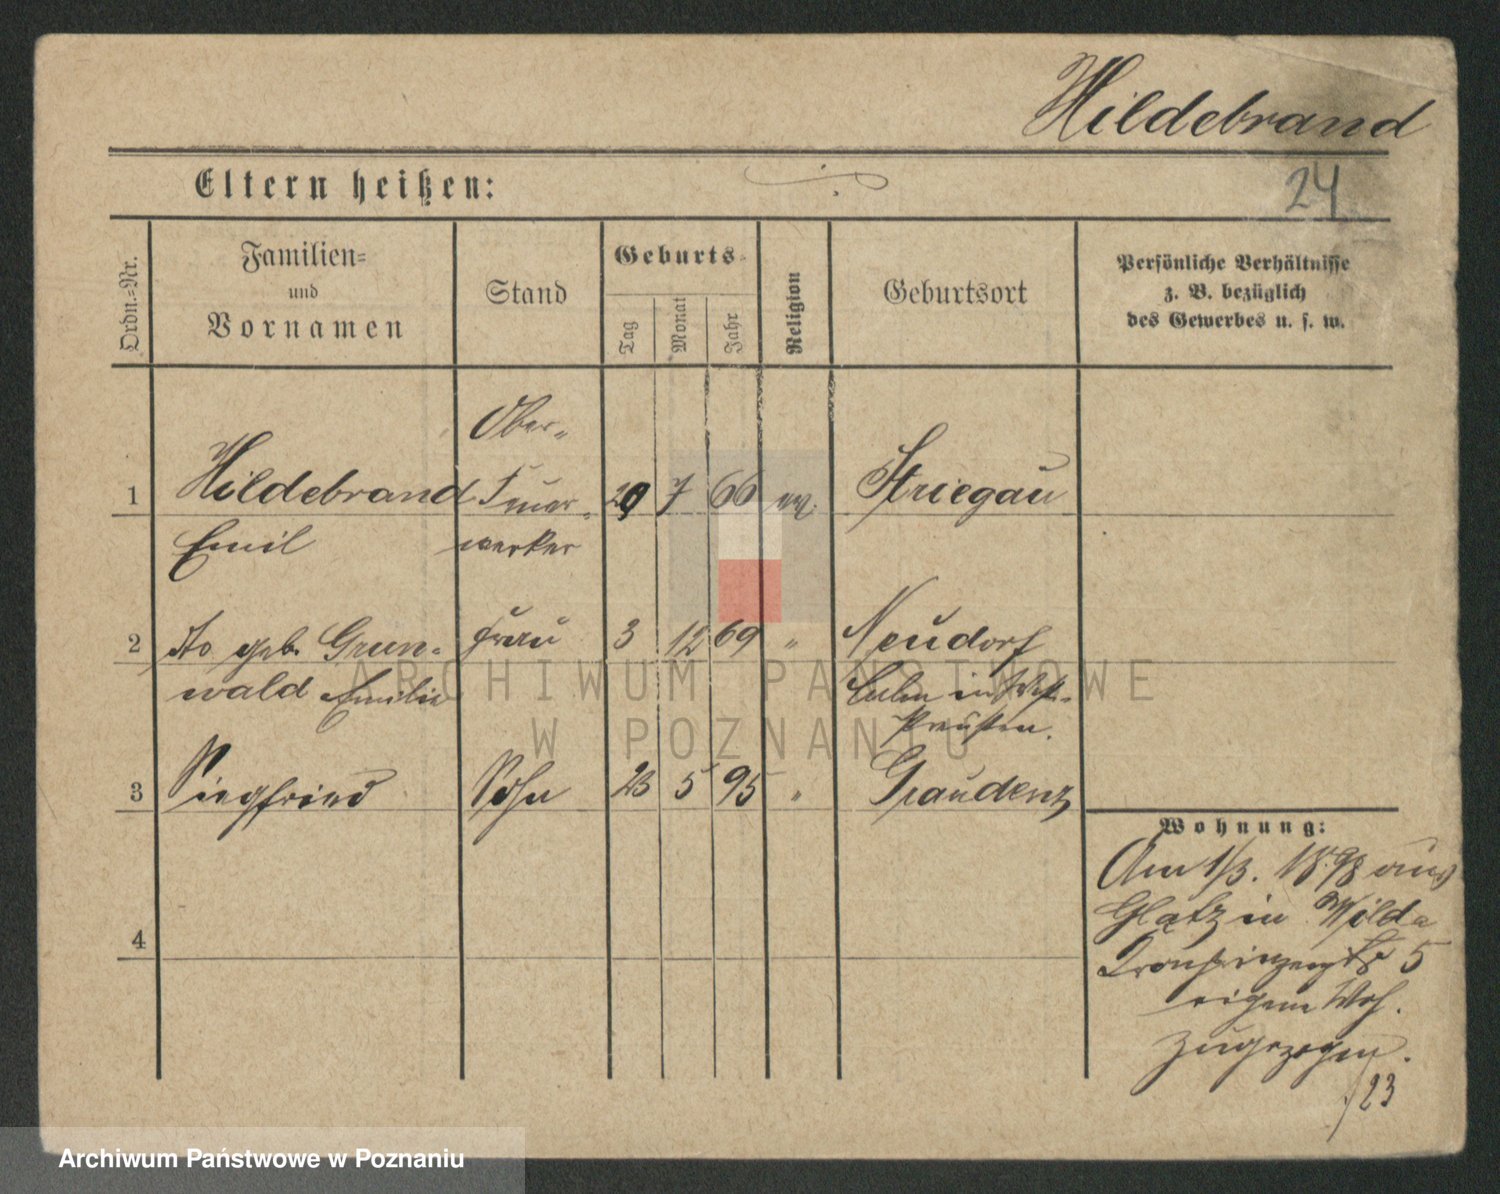 Hildebrand
Eltern heißen:
24
Ordn.-Nr.
Familien=
und
Vornamen
Stand
Geburts-
Tag
Monat
Jahr
Religion
Geburtsort
Persönliche Verhältnisse
z. B. bezüglich
des Gewerbes u. s. w.
Ober-
1 Hildebrand Feuer- 20 7 66 ev. Striegau
Emil werker
2 do geb. Grun- Frau 3 12 69 " Neudorf
wald Emilie Culm in West-
Preußen.
3 Siegfried Sohn 23 5 95 " Graudenz
Wohnung:
Am 1/3. 1898 aus
Glatz in Wilda
Kronprinzenstr 5
eigene Woh.
zugezogen.
4
/23
ARCHIWUM PAŃSTWOWE
W POZNANIU
Archiwum Państwowe w Poznaniu